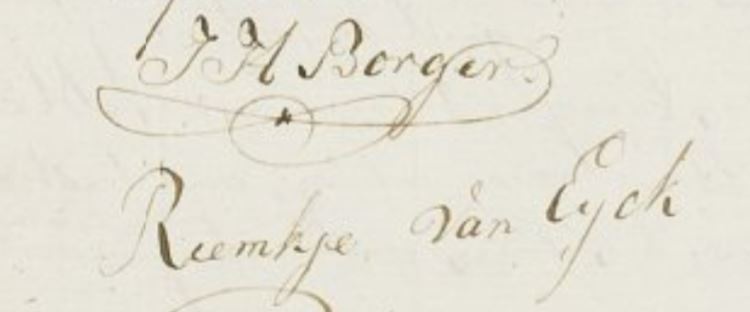 J H Borger.
Riemkje van Eyck